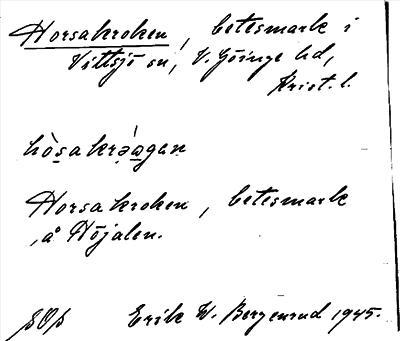 Horsakroken, betesmark i
Vittsjö sn, V. Göinge hd,
Krist. l.
hò̀sakrə́ǫgan
Horsakroken, betesmark
å Höjalen.
Erik W. Bergenrud 1945.